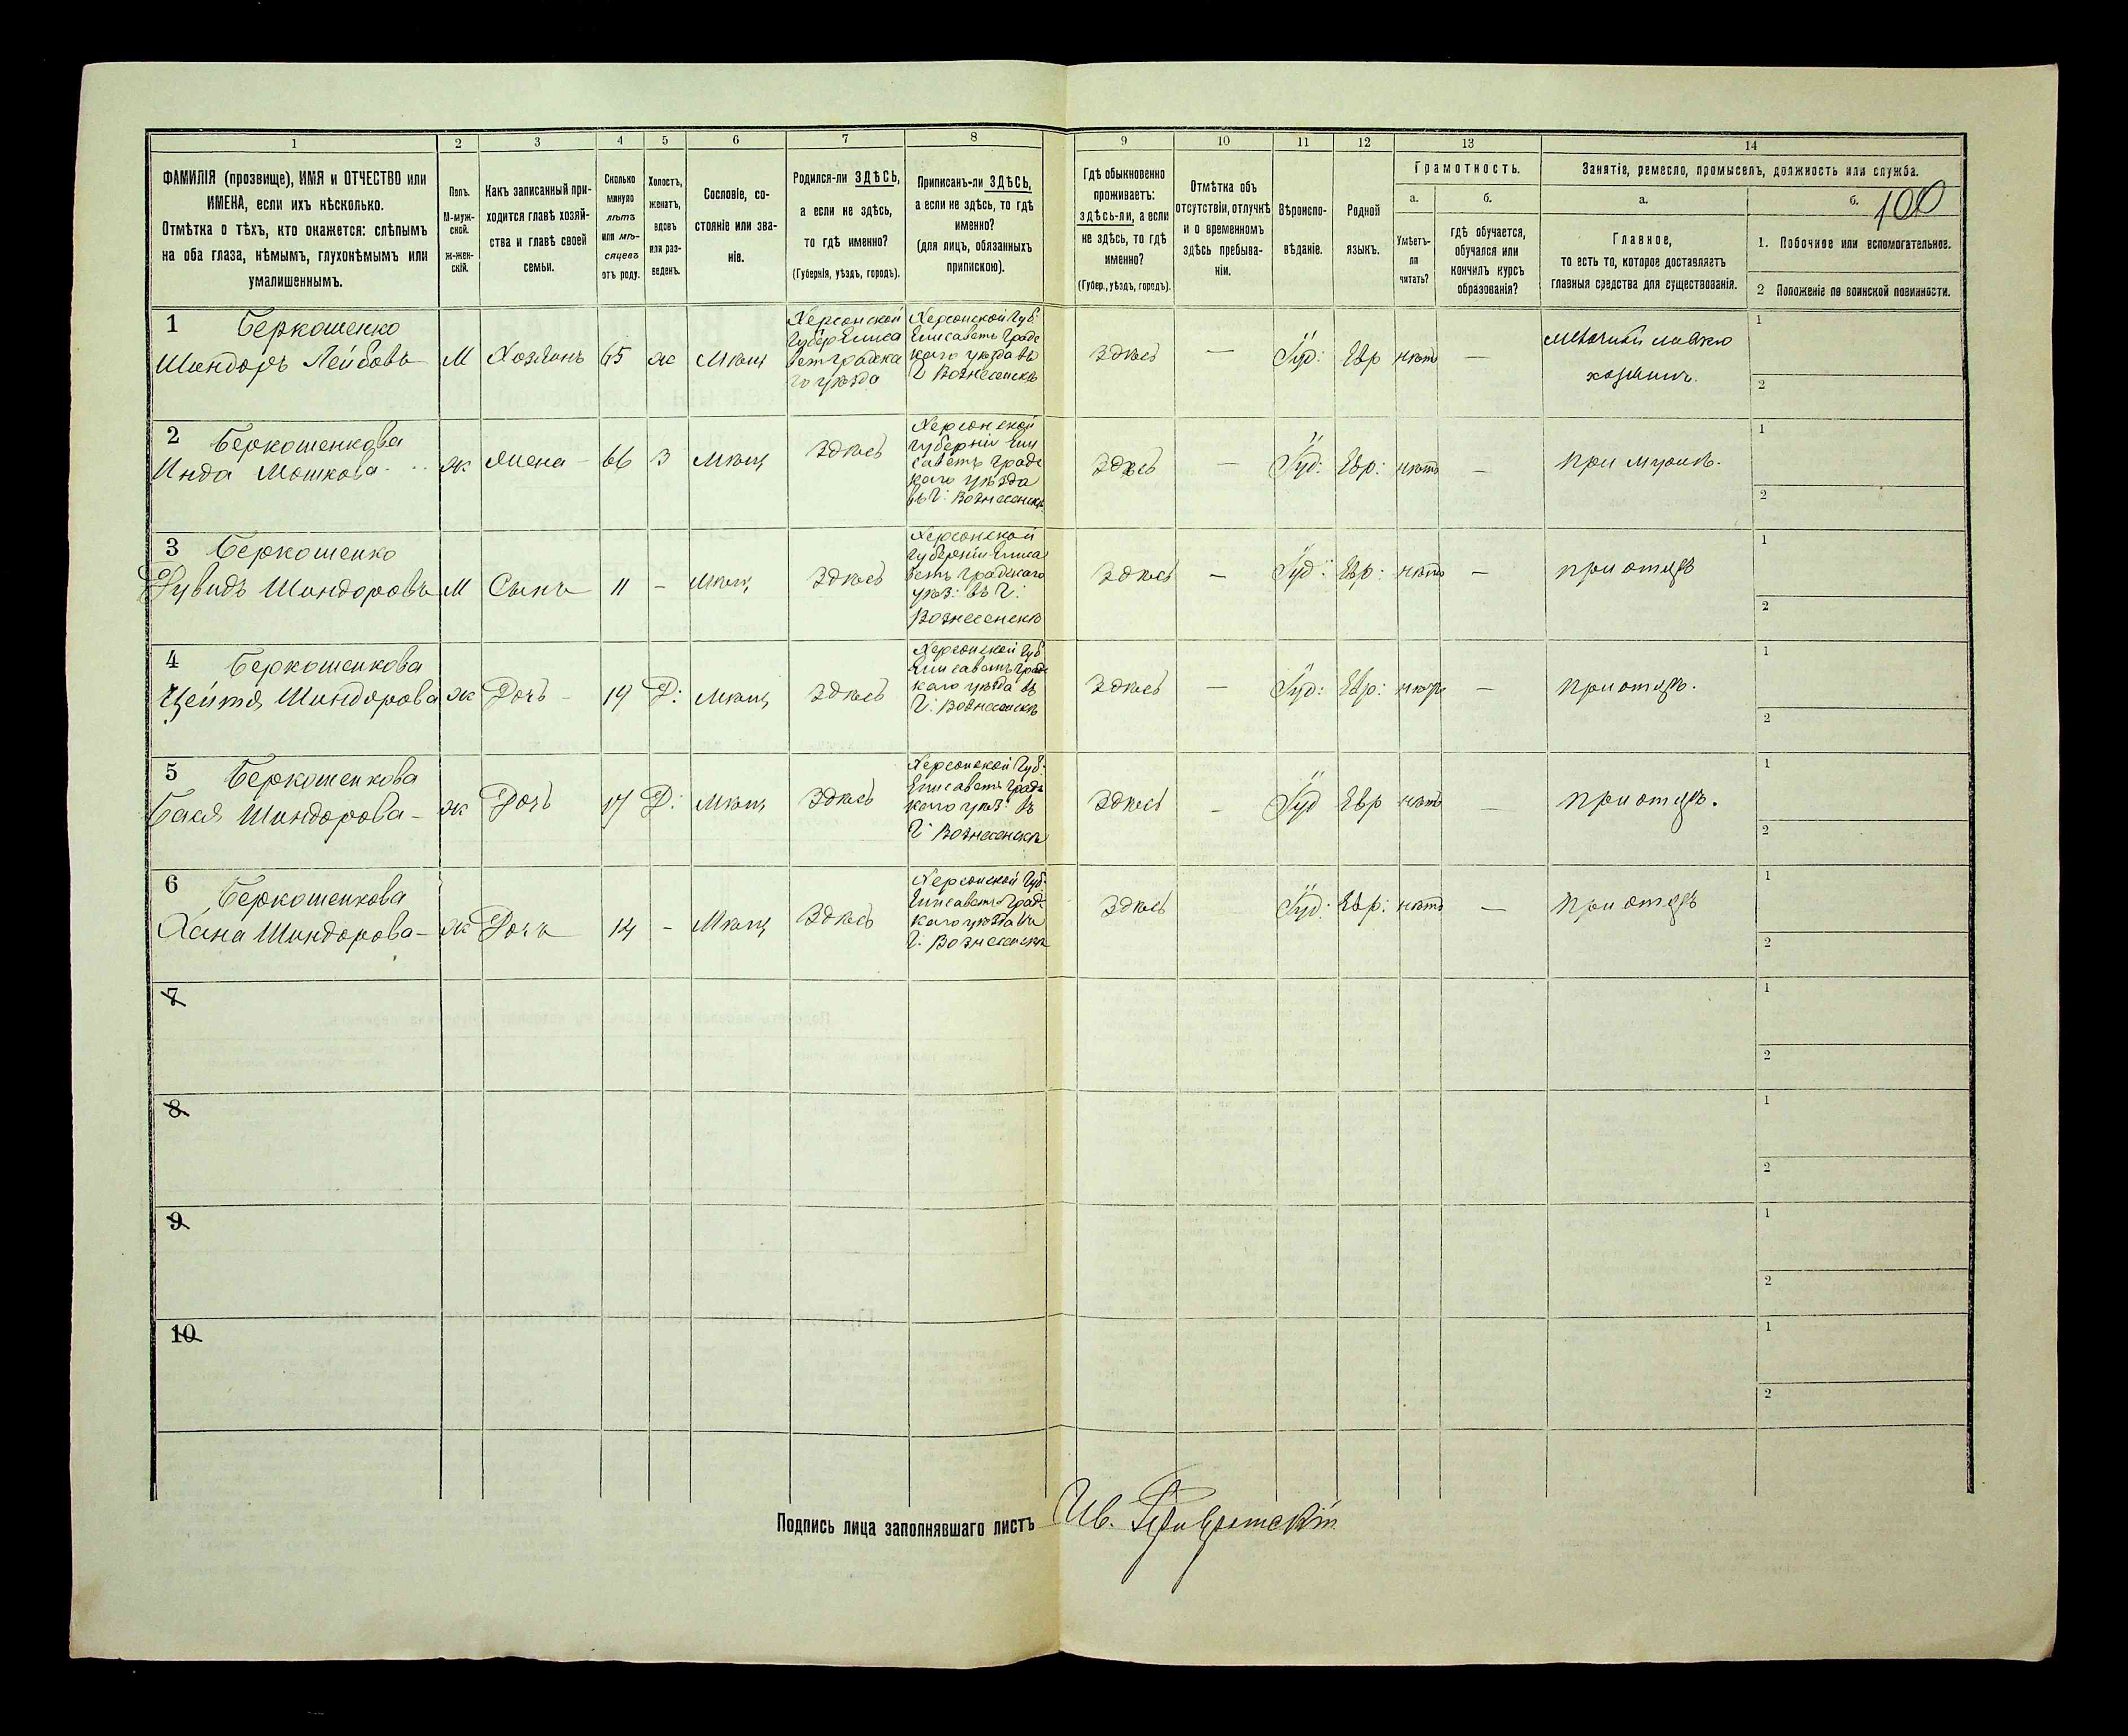 1 2 3 4 5 6 7 8 9 10 11 12 13 14
ФАМИЛІЯ (прозвище), ИМЯ и ОТЧЕСТВО или
ИМЕНА, если ихъ нѣсколько.
Отмѣтка о тѣхъ, кто окажется: слѣпымъ
на оба глаза, нѣмымъ, глухонѣмымъ или
умалишеннымъ.
Полъ.
М-муж-
ской.
Ж-жен-
скій.
Какъ записанный при-
ходится главѣ хозяй-
ства и главѣ своей
семьи.
Сколько
минуло
лѣтъ
или мѣ-
сяцевъ
отъ роду.
Холостъ,
женатъ,
вдовъ
или раз-
веденъ.
Сословіе, со-
стояніе или зва-
ніе.
Родился-ли ЗДѢСЬ,
а если не здѣсь,
то гдѣ именно?
(Губернія, уѣздъ, городъ).
Приписанъ-ли ЗДѢСЬ,
а если не здѣсь, то гдѣ
именно?
(для лицъ, обязанныхъ
припискою).
Гдѣ обыкновенно
проживаетъ:
здѣсь-ли, а если
не здѣсь, то гдѣ
именно?
(Губер., уѣздъ, городъ).
Отмѣтка объ
отсутствіи, отлучкѣ
и о временномъ
здѣсь пребыва-
ніи.
Вѣроиспо-
вѣданіе.
Родной
языкъ.
Грамотность.
а.
Умѣетъ-
ли
читать?
б.
гдѣ обучается,
обучался или
кончилъ курсъ
образованія?
Занятіе, ремесло, промыселъ, должность или служба.
а.
Главное,
то есть то, которое доставляетъ
главныя средства для существованія.
б.
100
1. Побочное или вспомогательное.
2 Положеніе по воинской повинности.
1 Беркошенко
Шиндоръ Лейбовъ М Хозяинъ 65 ж Мѣщ
Херсонской
Губер Елиса
ветградска
го уѣзда
Херсонской Губ:
Елисаветъ Градс
каго уѣзда въ
Г Вознесенскѣ
здѣсь — Іуд: Евр нѣтъ —
мѣлочный лавки
хозяинъ.
1
2
2 Беркошенкова
Инда Мошкова ж Жена 66 З Мѣщ Здѣсь
Херсонской
губерніи Ели
саветъ Градс
каго уѣзда
въ Г: Вознесенскѣ
Здѣсь — Іуд: Евр: нѣтъ — при мужѣ.
1
2
3 Беркошенко
Дувидъ Шиндоровъ М Сынъ 11 — Мѣщ Здѣсь
Херсонской
губерніи Елиса
ветъ Градскаго
уѣз: въ Г:
Вознесенскѣ
Здѣсь — Іуд: Евр: нѣтъ — при отцѣ
1
2
4 Беркошенкова
Цейтя Шиндорова ж Дочь 19 Д: Мѣщ Здѣсь
Херсонской Губ
Елисаветъ Градс
каго уѣзда въ
Г: Вознесенскѣ
Здѣсь — Іуд: Евр: нѣтъ — при отцѣ.
1
2
5 Беркошенкова
Бася Шиндорова — ж Дочь 17 Д: Мѣщ Здѣсь
Херсонской Губ:
Елисаветъ Градс
каго уѣз: въ
Г: Вознесенскѣ
Здѣсь — Іуд Евр нѣтъ — при отцѣ.
1
2
6 Беркошенкова
Хана Шиндорова — ж Дочь 14 — Мѣщ Здѣсь
Херсонской Губ:
Елисаветъ Градс
каго уѣзда въ
Г: Вознесенскѣ
Здѣсь Іуд: Евр: нѣтъ — при отцѣ
1
2
7
1
2
8
1
2
9
1
2
10
1
2
Подпись лица заполнявшаго листъ Ив.